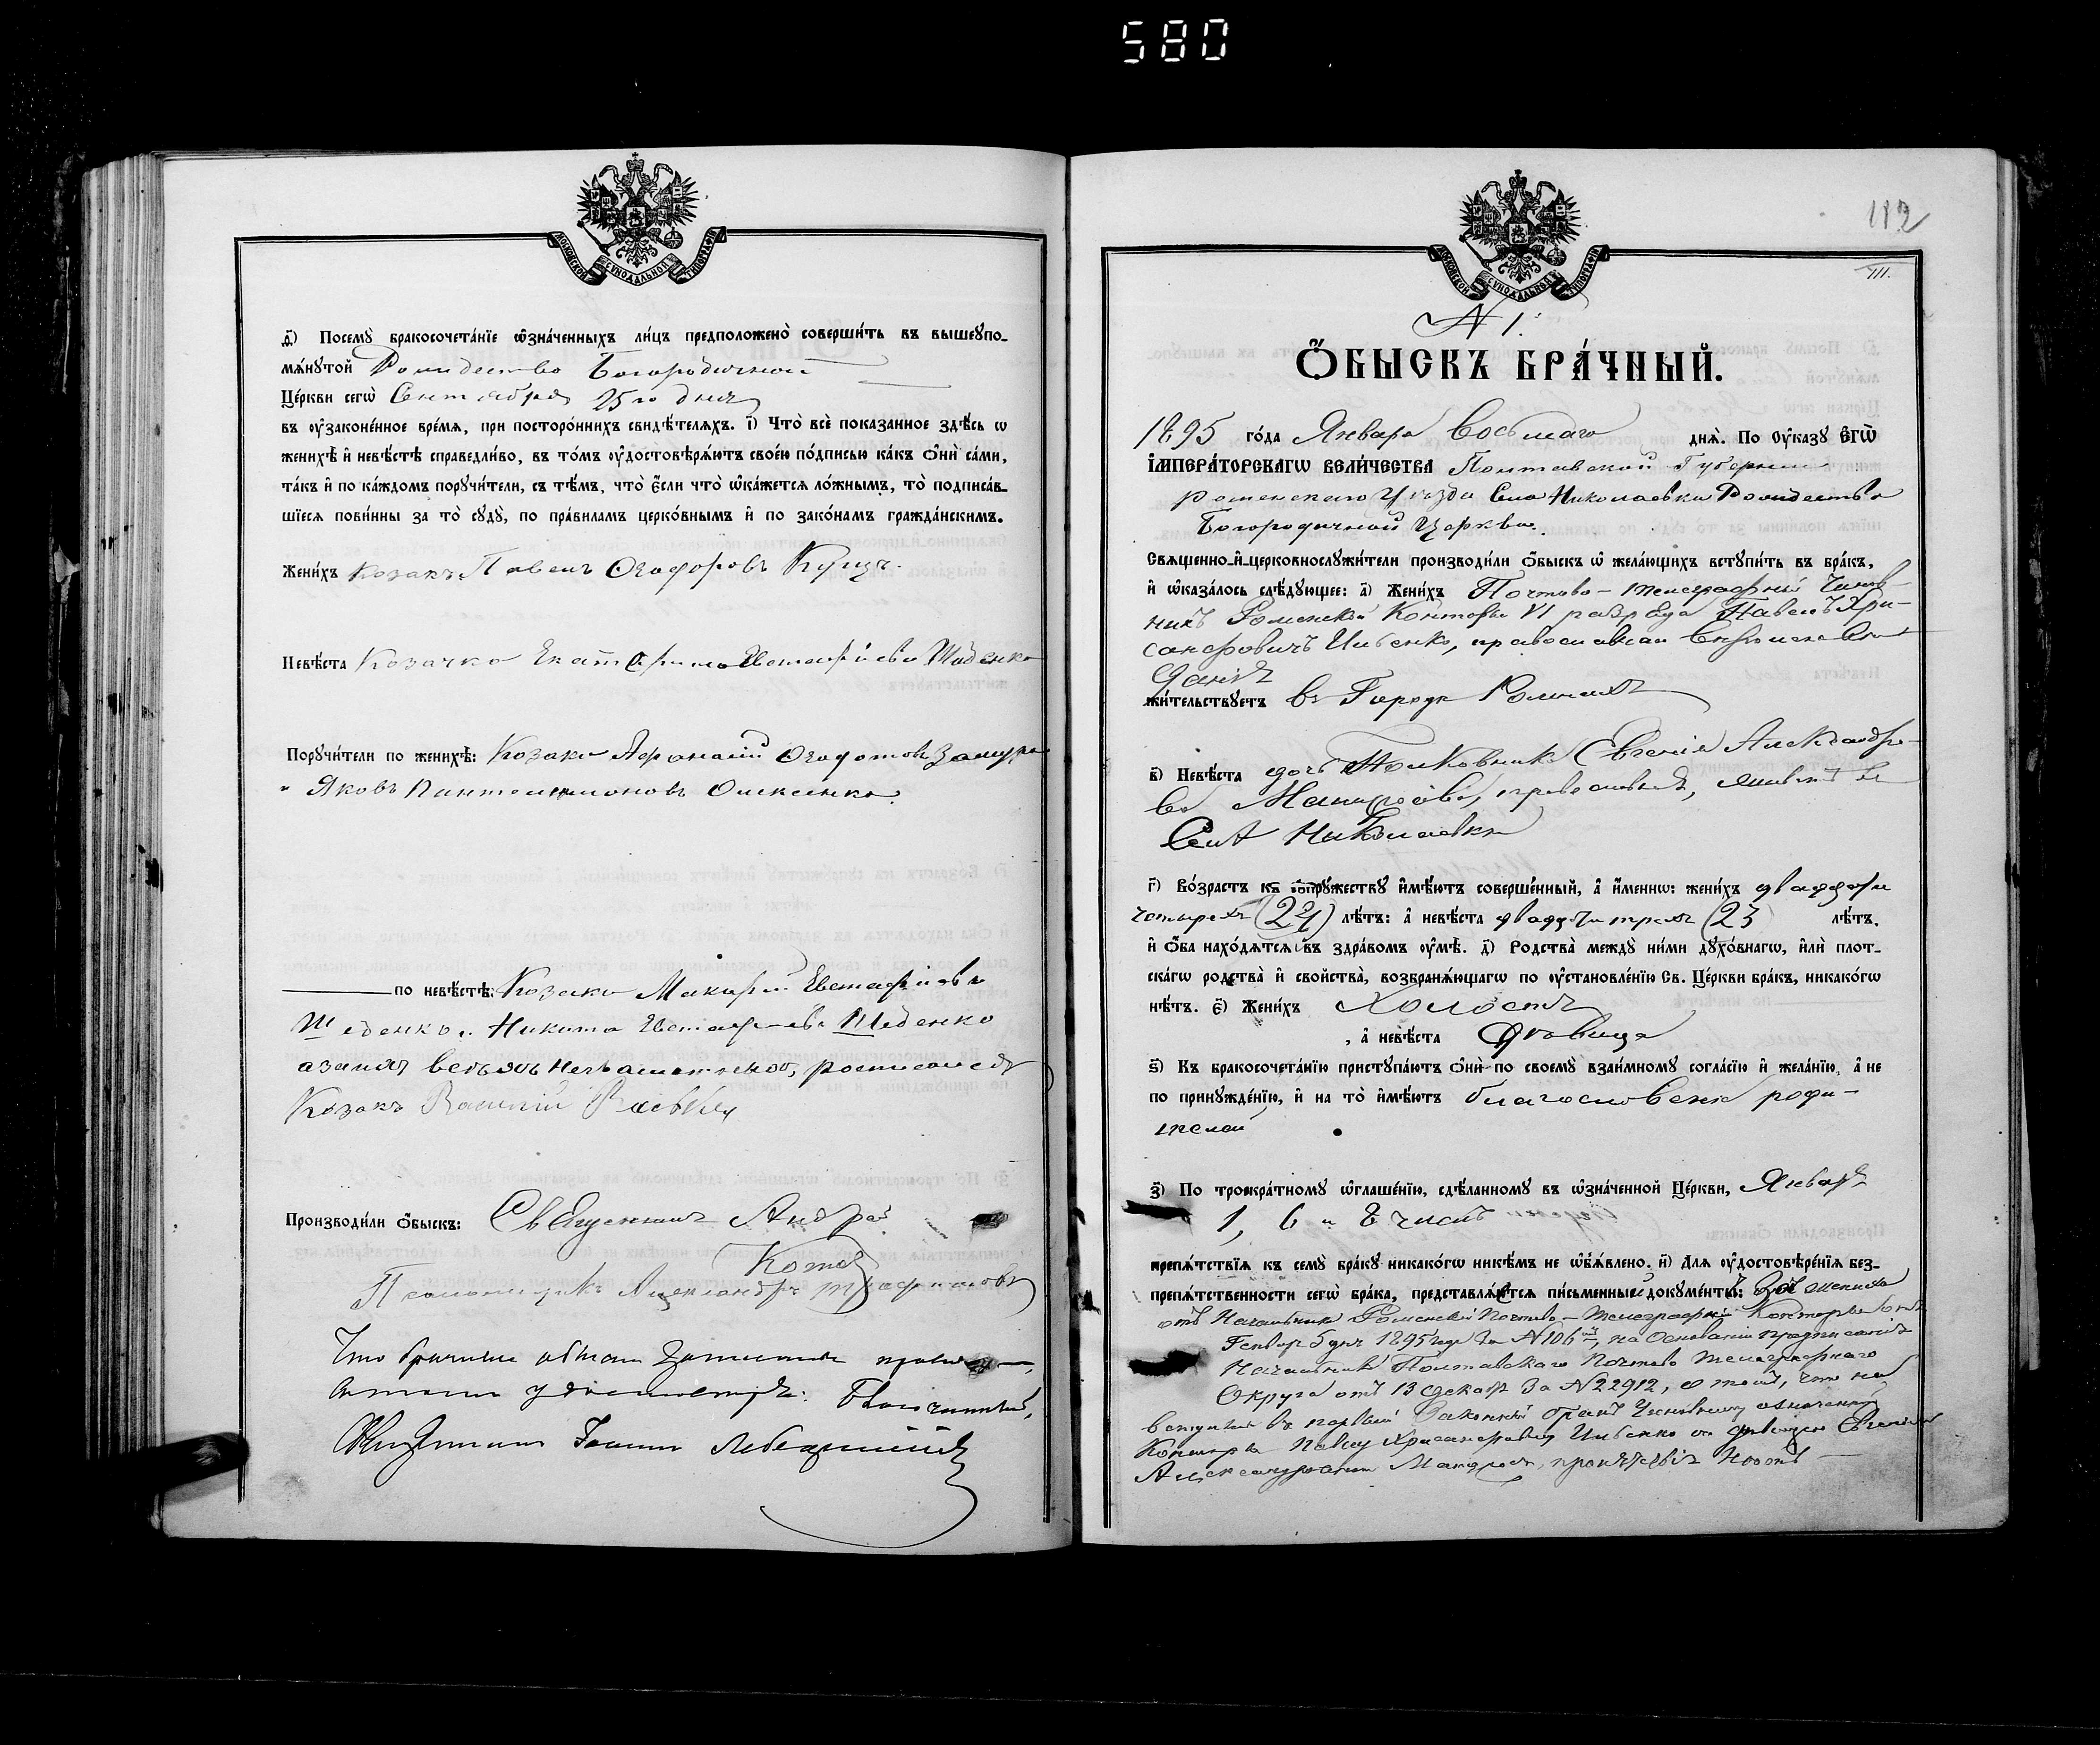 580
МОСКОВСКОЙ СѴНОДАЛЬНОЙ ТИПОГРАФІИ
д҃) Посемꙋ̀ бракосочета́нїе ѡ҆зна́ченныхъ ли́цъ предположено̀ соверши́ть въ вышеꙋпо-
мѧ́нꙋтой Рождество Богородичной
Це́ркви сегѡ̀ Сентября 25го дня
въ ᲂу҆законе́нное вре́мѧ, при посторо́ннихъ свидѣ́телѧхъ. і҃) Что̀ всѐ показанное здѣ́сь ѡ
женихѣ̀ и҆ невѣ́стѣ справедли́во, въ то́мъ ᲂу҆достовѣрѧ́ютъ свое́ю по́дписью ка́къ ѻ҆нѝ са́ми,
та́къ и҆ по ка́ждомъ порꙋчи́тели, съ тѣ́мъ, что̀ є҆́сли что̀ ѡ҆ка́жетсѧ ло́жнымъ, то̀ подписа́в-
шїесѧ пови́нны за то̀ сꙋдꙋ̀, по пра́виламъ церко́внымъ и҆ по зако́намъ гражда́нскимъ.
Жени́хъ Козакъ Павелъ Ѳеодоровъ Куцъ.
Невѣ́ста Козачка Екатерина Евстафіева Шаденко
Порꙋчи́тели по женихѣ̀: Козаки Афанасій Ѳеодотовъ
Яковъ Пантелимоновъ Олексенко.
по невѣ́стѣ: Козаки Макарій Евстафіевъ
Шеденко и Никита Евстафіевъ Шеденко
а за нихъ всѣхъ неграмотныхъ, росписался
Козакъ Василій
Производи́ли ѻ҆́быскъ: Свѧщенникъ Андрей
Псаломщикъ Александръ
Что брачные обыски записаны
удостовѣряю: Благочинный,
Священникъ Іоаннъ
112
111.
МОСКОВСКОЙ СѴНОДАЛЬНОЙ ТИПОГРАФІИ
N 1.
Ѻ҆́БЫСКЪ БРА́ЧНЫЙ.
1895 го́да Января Восьмаго днѧ̀. По ᲂу҆ка́зꙋ Є҆ГѠ̀
И҆МПЕРА́ТОРСКАГѠ ВЕЛИ́ЧЕСТВА Полтавской Губерніи
Роменскаго Уѣзда Села Николаевки Рождества
Богородичной Церкви.
Свѧще́нно-и҆-церковнослꙋжи́тели производи́ли ѻ҆́быскъ ѡ҆ жела́ющихъ встꙋпи́ть въ бра́къ,
и҆ ѡ҆каза́лось слѣ́дꙋющее: а҃) Жени́хъ Почтово-телеграфный Чинов-
никъ Роменской Конторы VI разряда Павелъ Хри-
санфовичъ Ильенко, православнаго
жи́тельствꙋетъ въ Городѣ Ромнахъ
в҃) Невѣ́ста дочь Полковника Евгенія Александро-
ва православная,
Селѣ Николаевкѣ
г҃) Во́зрастъ къ сꙋпрꙋ́жествꙋ и҆мѣ́ютъ соверше́нный, а҆ и҆́меннѡ: жени́хъ двадцати
четырехъ (24) лѣ́тъ: а҆ невѣ́ста двадцати трехъ (23 лѣ́тъ.
и҆ ѻ҆́ба нахо́дѧтсѧ въ здра́вомъ ᲂу҆мѣ̀. д҃) Родства̀ междꙋ̀ ни́ми дꙋхо́внагѡ, и҆лѝ плот-
ска́гѡ родства̀ и҆ сво́йства, возбранѧ́ющагѡ по ᲂу҆становле́нїю Св. Це́ркви бра́къ, никако́гѡ
нѣ́тъ. є҃) Жени́хъ Холостъ
, а҆ невѣ́ста Дѣвица
ѕ҃) Къ бракосочета́нїю пристꙋпа́ютъ ѻ҆нѝ по своемꙋ̀ взаи́мномꙋ согла́сїю и҆ жела́нїю, а҆ не
по принꙋжде́нїю, и҆ на то̀ и҆мѣ́ютъ благословеніе роди-
телей
з҃) По трокра́тномꙋ ѡ҆глаше́нїю, сдѣ́ланномꙋ въ ѡ҆зна́ченной Це́ркви, Января
1, 6 и 8 числъ
препѧ́тствїѧ къ семꙋ̀ бра́кꙋ никако́гѡ никѣ́мъ не ѡ҆б̾ѧ́влено. и҃) Длѧ̀ ᲂу҆достовѣре́нїѧ без-
препѧ́тственности сегѡ̀ бра́ка, представлѧ́етсѧ пи́сьменный докꙋме́нтъ: жениха
отъ Начальника Роменской Почтово-Телеграфной Конторы отъ
Генвар 5 дня 1895 года за N 106, на основаніи предписанія
Начальника Полтавскаго Почтово телеграфнаго
Округа отъ 13 декабр за N 22912, о томъ, что на
вступленіе въ первый Законный бракъ Чиновнику означенной
Конторы Павлу Хрисанфовичу Ильенко съ дѣвицею Евгеніею
Александровною препятствія